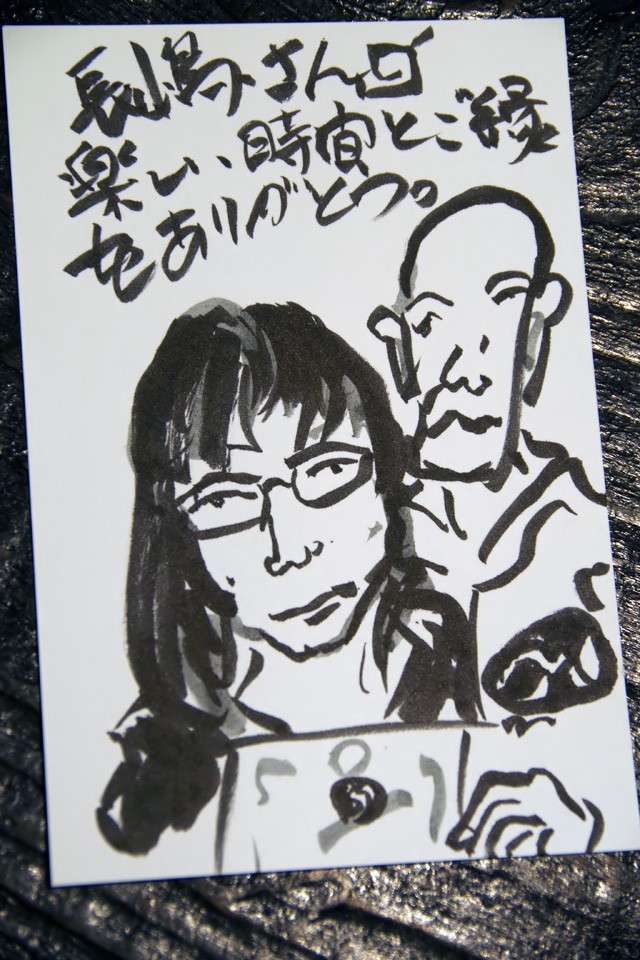 長島さん
楽しい、時間とご縁
をありがとう。